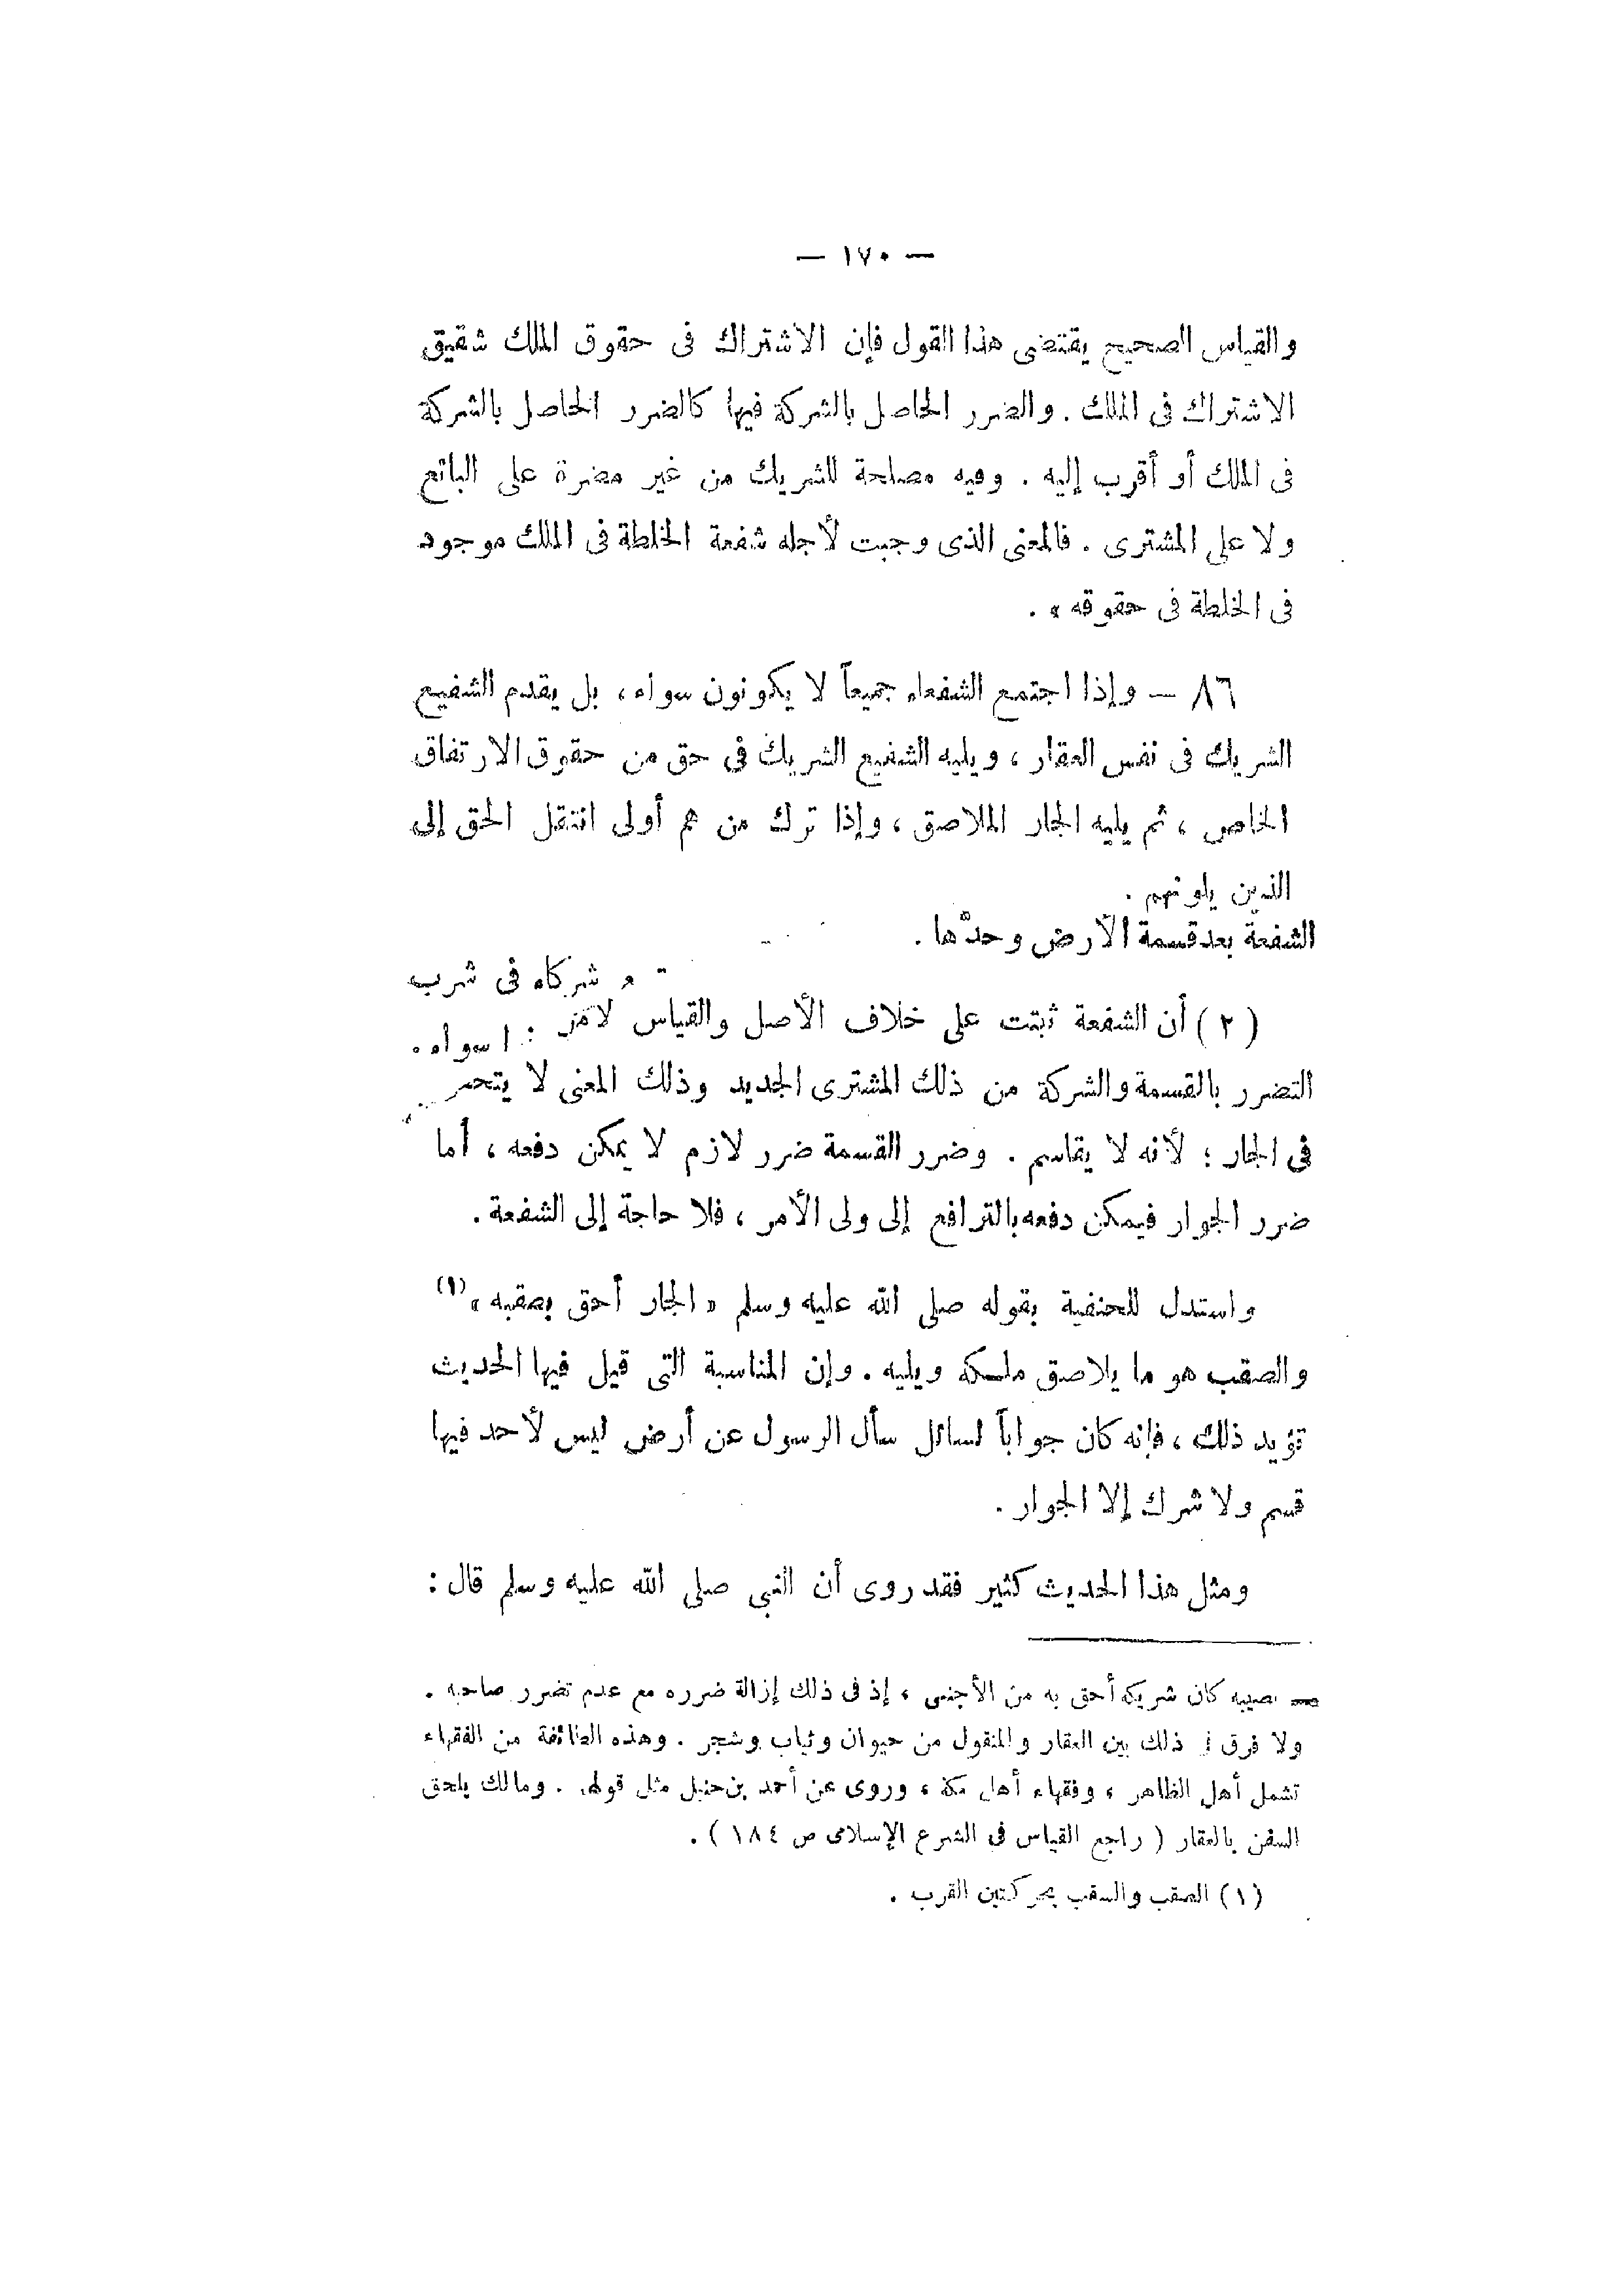 — ١٧٠ —
والقياس الصحيح يقتضى هذا القول فإن الاشتراك فى حقوق الملك شقيق
الاشتراك فى الملك . والضرر الحاصل بالشركة فيها كالضرر الحاصل بالشركة
فى الملك أو أقرب إليه . وفيه مصلحة للشريك من غير مضرة على البائع
ولا على المشترى . فالمعنى الذى وجبت لأجله شفعة الخلطة فى الملك موجود
فى الخلطة فى حقوقه » .
٨٦ — وإذا اجتمع الشفعاء جميعاً لا يكونون سواء ، بل يقدم الشفيع
الشريك فى نفس العقار ، ويليه الشفيع الشريك فى حق من حقوق الارتفاق
الخاص ، ثم يليه الجار الملاصق ، وإذا ترك من هم أولى انتقل الحق إلى
الذين يلونهم .
الشفعة بعد قسمة الأرض وحدّها .
شركاء فى شرب
(٢) أن الشفعة ثبتت على خلاف الأصل والقياس
سواء .
التضرر بالقسمة والشركة من ذلك المشترى الجديد وذلك المعنى لا
فى الجار ؛ لأنه لا يقاسم . وضرر القسمة ضرر لازم لا يمكن دفعه ، أما
ضرر الجوار فيمكن دفعه بالترافع إلى ولى الأمر ، فلا حاجة إلى الشفعة .
واستدل للحنفية بقوله صلى الله عليه وسلم « الجار أحق بصقبه » (١)
والصقب هو ما يلاصق ملكه ويليه . وإن المناسبة التى قيل فيها الحديث
تؤيد ذلك ، فإنه كان جواباً لسائل سأل الرسول عن أرض ليس لأحد فيها
قسم ولا شرك إلا الجوار .
ومثل هذا الحديث كثير فقد روى أن النبى صلى الله عليه وسلم قال :
= نصيبه كان شريكه أحق به من الأجنبى ، إذ فى ذلك إزالة ضرره مع عدم تضرر صاحبه .
ولا فرق فى ذلك بين العقار والمنقول من حيوان وثياب وشجر . وهذه الطائفة من الفقهاء
تشمل أهل الظاهر ، وفقهاء أهل مكة ، وروى عن أحمد بن حنبل مثل قولهم . ومالك يلحق
السفن بالعقار ( راجع القياس فى الشرع الإسلامى ص ١٨٤ ) .
(١) الصقب والسقب بحركتين القرب .